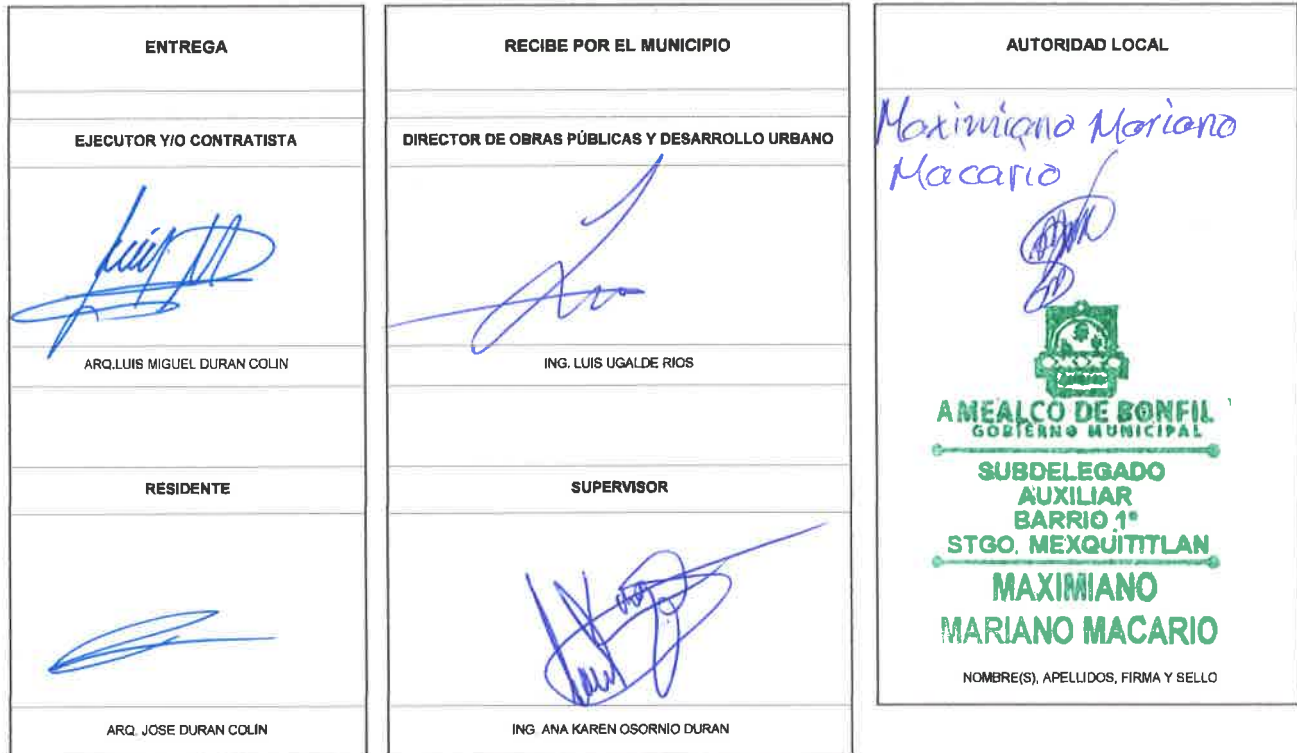 ENTREGA
EJECUTOR Y/O CONTRATISTA
ARQ.LUIS MIGUEL DURAN COLIN
RESIDENTE
ARQ. JOSE DURAN COLÍN
RECIBE POR EL MUNICIPIO
DIRECTOR DE OBRAS PÚBLICAS Y DESARROLLO URBANO
ING. LUIS UGALDE RIOS
SUPERVISOR
ING ANA KAREN OSORNIO DURAN
AUTORIDAD LOCAL
Maximiano Mariano
Macario
AMEALCO DE BONFIL
GOBIERNO MUNICIPAL
SUBDELEGADO
AUXILIAR
BARRIO 1°
STGO. MEXQUITITLAN
MAXIMIANO
MARIANO MACARIO
NOMBRE(S), APELLIDOS, FIRMA Y SELLO